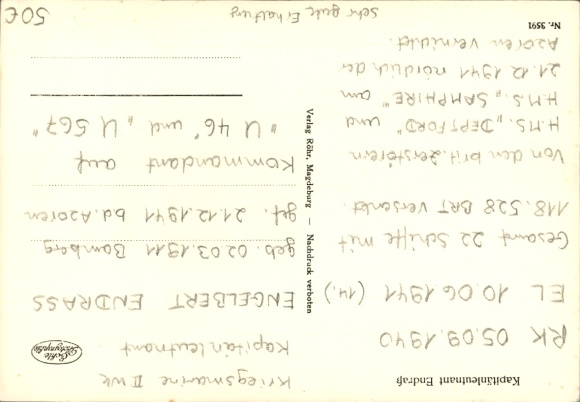 Kapitänleutnant Endraß
RK 05.09.1940
EL 10.06.1941 (14.)
Gesamt 22 Schiffe mit
118.528 BRT versenkt.
Von den brit. Zerstörern
H.M.S. „DEPTFORD" und
H.M.S. „SAMPHIRE" am
21.12.1941 nördlich der
Azoren vernichtet.
Nr. 3591
Verlag Röhr, Magdeburg — Nachdruck verboten
Kriegsmarine II WK
Kapitänleutnant
Echte
Photographie
ENGELBERT ENDRASS
geb. 02.03.1911 Bamberg
gef. 21.12.1941 b.d. Azoren
Kommandant auf
"U 46" und "U 567"
Sehr gute Erhaltung
50€